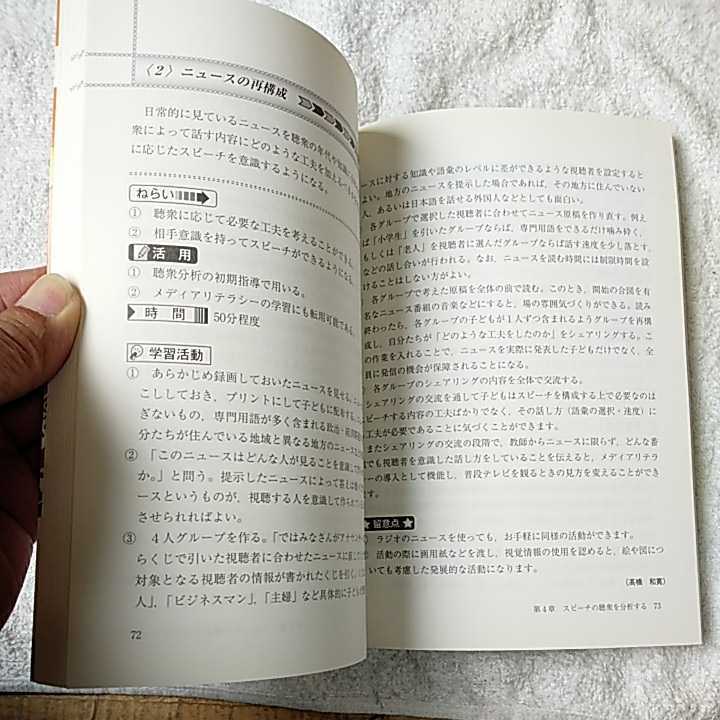 〈2〉ニュースの再構成
日常的に見ているニュースを聴衆の年代や知識
衆によって話す内容にどのような工夫を加え
に応じたスピーチを意識するようになる。
ねらい
① 聴衆に応じて必要な工夫を考えることができ
② 相手意識を持ってスピーチができるようになる
活用
① 聴衆分析の初期指導で用いる。
② メディアリテラシーの学習にも転用可能である。
時間 50分程度
学習活動
① あらかじめ録画しておいたニュースを見せる。
こししておき、プリントにして子どもに配布する。
ぎないもの、専門用語が多く含まれる政治・経済
分たちが住んでいる地域と異なる地方のニュース
② 「このニュースはどんな人が見ることを意識して
か。」と問う。提示したニュースによって答えは
ースというものが、視聴する人を意識して作ら
させられればよい。
③ 4人グループを作る。「ではみなさんがアナウンサ
らくじで引いた視聴者に合わせたニュースに直し
対象となる視聴者の情報が書かれたくじを引く。
人」、「ビジネスマン」、「主婦」など具体的に子ども
72
ースに対する知識や語彙のレベルに差ができるような視聴者を設定すると
よい。地方のニュースを提示した場合であれば、その地方に住んでいない
人、あるいは日本語を話せる外国人などとしても面白い。
各グループで選択した視聴者に合わせてニュース原稿を作り直す。例え
ば「小学生」を引いたグループならば、専門用語をできるだけ噛み砕く、
もしくは「老人」を視聴者に選んだグループならば話す速度を少し落とす、
などの話し合いが行われる。なお、ニュースを読む時間には制限時間を設
けることはしない方がよい。
各グループで考えた原稿を全体の前で読む。このとき、開始の合図を有
名なニュース番組の音楽などにすると、場の雰囲気づくりができる。読み
終わったら、各グループの子どもが1人ずつ含まれるようグループを再構
成し、自分たちが「どのような工夫をしたのか」をシェアリングする。こ
の作業を入れることで、ニュースを実際に発表した子どもだけでなく、全
員に発信の機会が保障されることになる。
各グループのシェアリングの内容を全体で交流する。
シェアリングの交流を通して子どもはスピーチを構成する上で必要なのは
スピーチする内容の工夫ばかりでなく、その話し方(語彙の選択・速度)に
工夫が必要であることに気づくことができます。
またシェアリングの交流の段階で、教師からニュースに限らず、どんな番
でも視聴者を意識した話し方をしていることを伝えると、メディアリテラ
シーの導入として機能し、普段テレビを観るときの見方を変えることができ
ます。
★留意点★
ラジオのニュースを使っても、お手軽に同様の活動ができます。
活動の際に画用紙などを渡し、視覚情報の使用を認めると、絵や図につ
いても考慮した発展的な活動になります。
(髙橋 和寛)
第4章 スピーチの聴衆を分析する 73